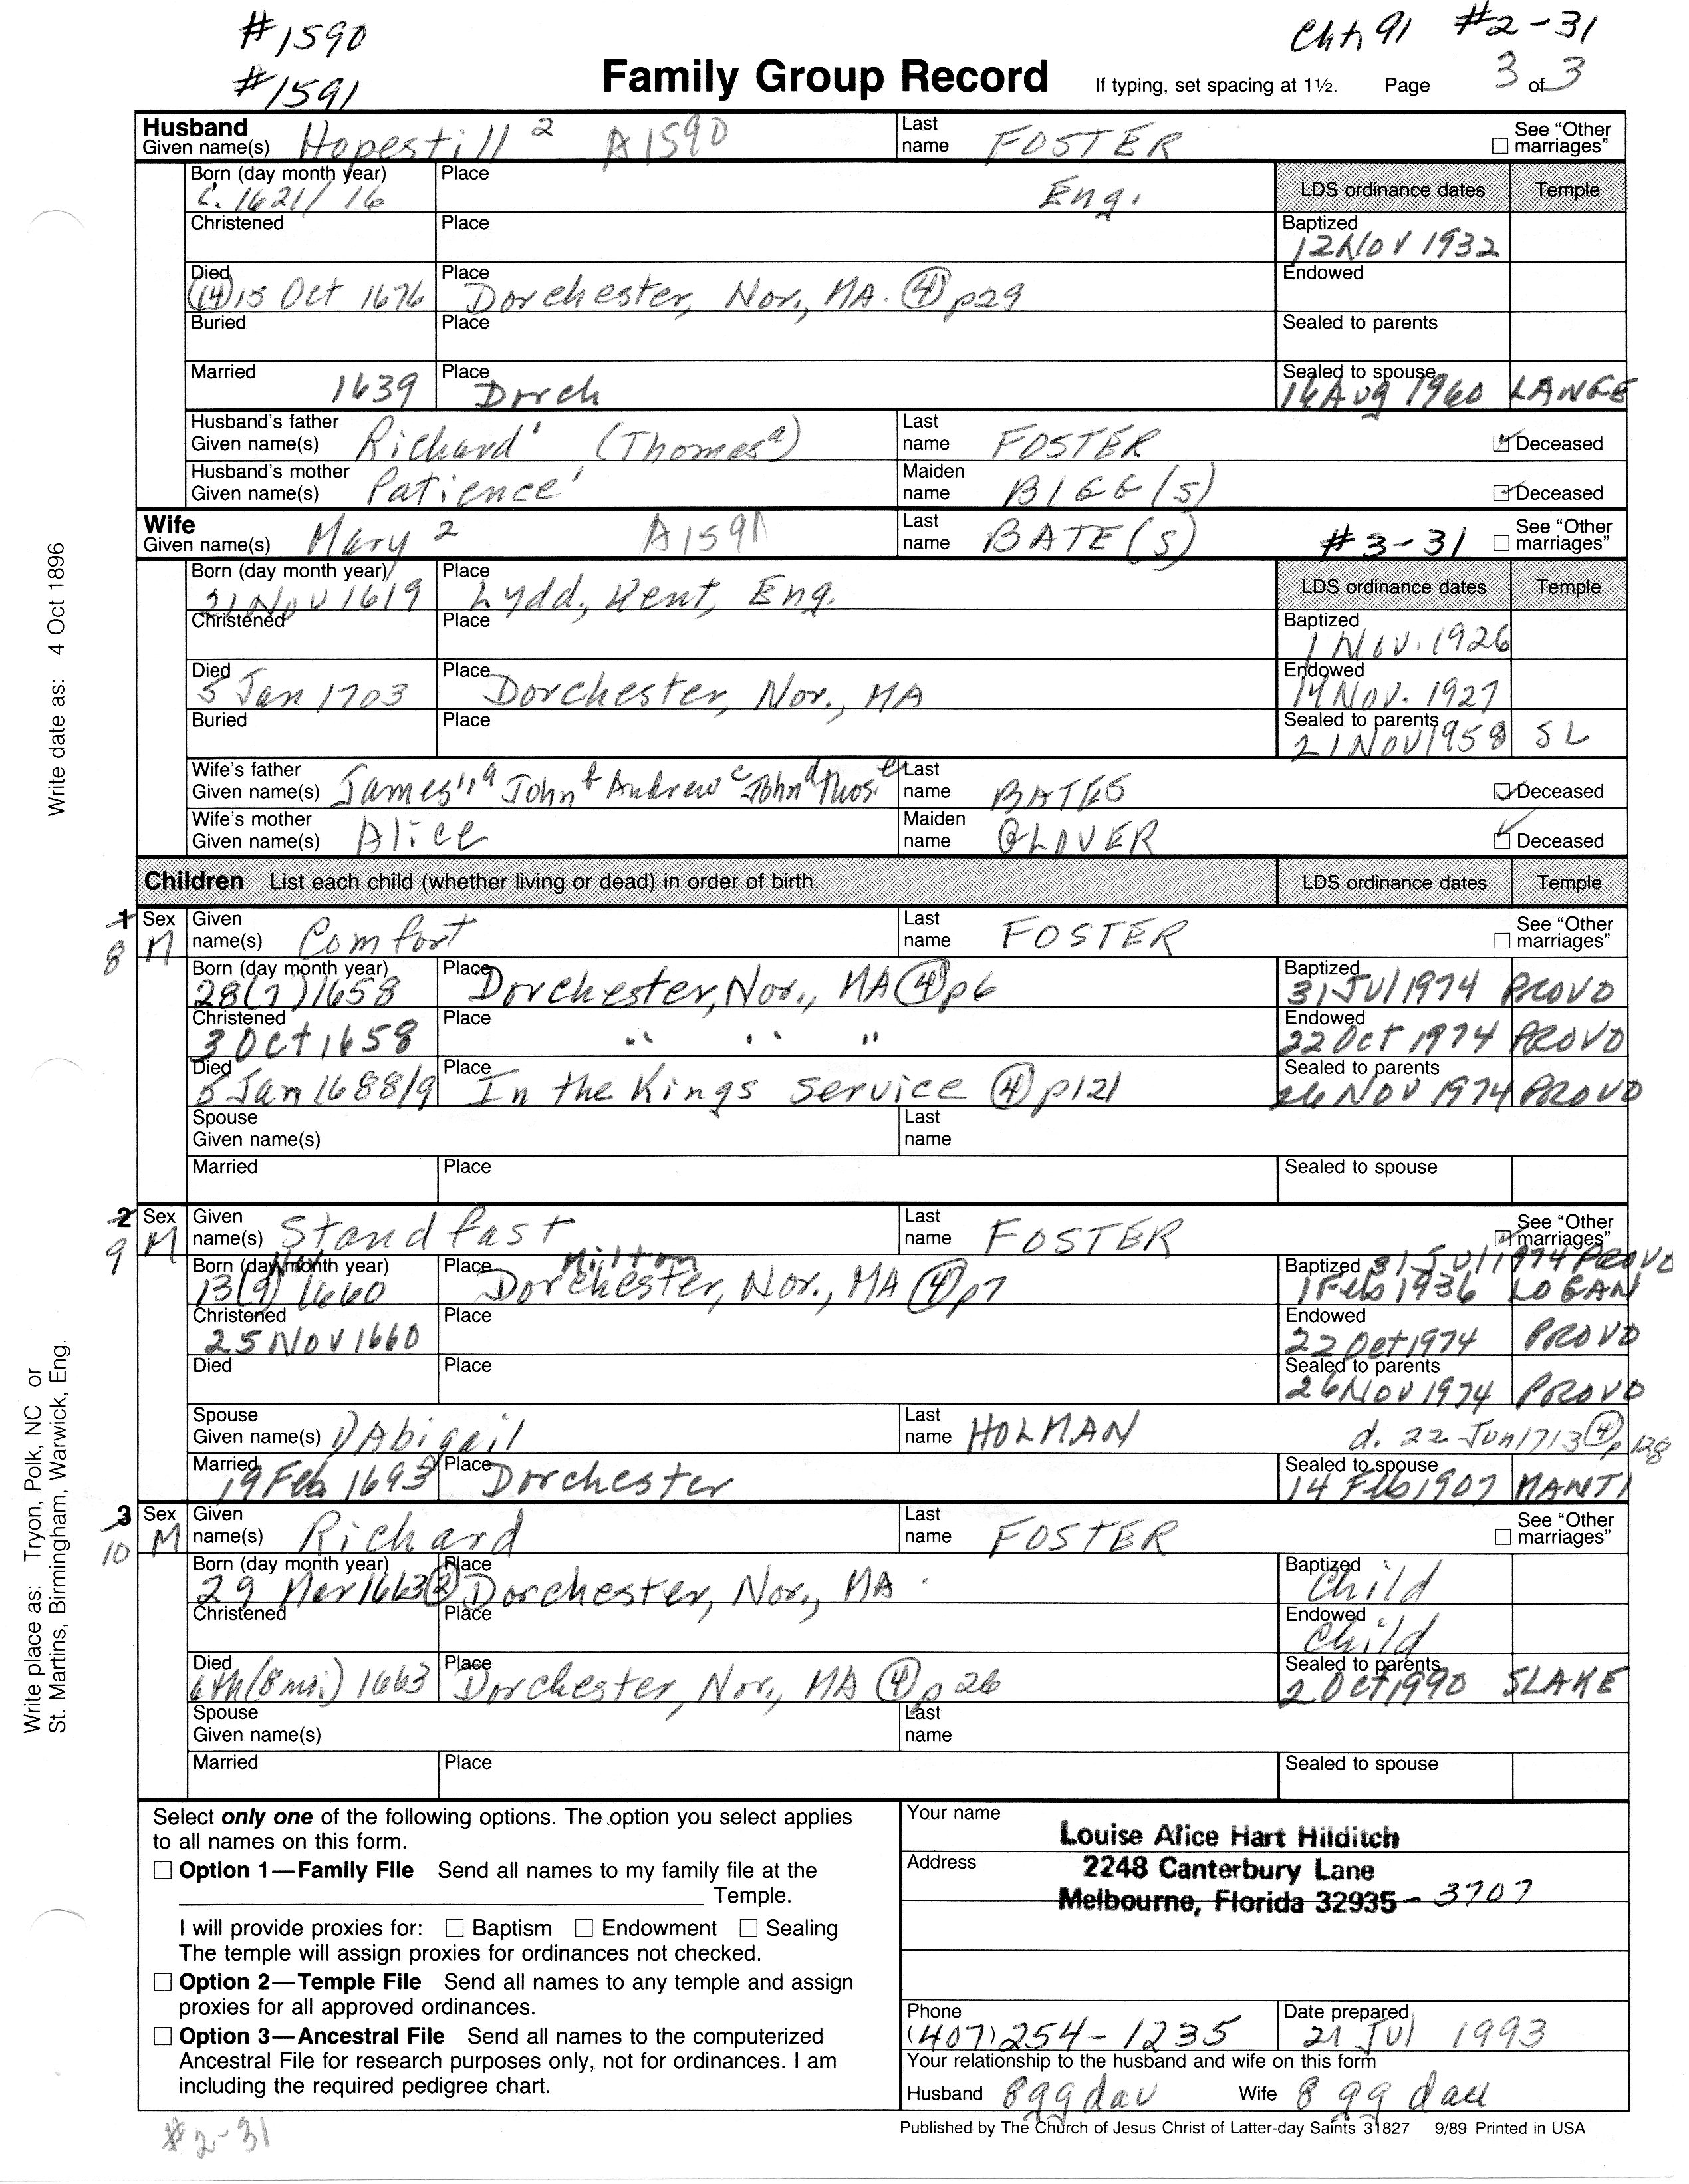 #1590
#1591
Cht. 91 #2-31
Family Group Record If typing, set spacing at 1½. Page 3 of 3
Husband
Given name(s) Hopestill 2 A1590 Last name FOSTER See "Other marriages"
Born (day month year) C. 1621/16 Place Eng. LDS ordinance dates Temple
Christened Place Baptized 12 NOV 1932
Died (14) 15 Oct 1676 Place Dorchester, Nor., MA. (4) p29 Endowed
Buried Place Sealed to parents
Married 1639 Place Dorch Sealed to spouse 16 Aug 1960 LANGE
Husband's father Given name(s) Richard 1 (Thomas a) Last name FOSTER Deceased
Husband's mother Given name(s) Patience 1 Maiden name BIGG(S) Deceased
Wife
Given name(s) Mary 2 A1591 Last name BATE(S) #3-31 See "Other marriages"
Born (day month year) 21 Nov 1619 Place Lydd, Kent, Eng. LDS ordinance dates Temple
Christened Place Baptized 1 Nov. 1926
Died 5 Jan 1703 Place Dorchester, Nor., MA Endowed 14 Nov. 1927
Buried Place Sealed to parents 21 NOV 1958 SL
Wife's father Given name(s) James 1, a John b Andrew c John d Thos. e Last name BATES Deceased
Wife's mother Given name(s) Alice Maiden name GLOVER Deceased
Children List each child (whether living or dead) in order of birth. LDS ordinance dates Temple
1 8 Sex M Given name(s) Comfort Last name FOSTER See "Other marriages"
Born (day month year) 28(7)1658 Place Dorchester, Nor., MA (4) p6 Baptized 31 Jul 1974 PROVO
Christened 3 Oct 1658 Place " " " Endowed 22 Oct 1974 PROVO
Died 5 Jan 1688/9 Place In the Kings service (4) p121 Sealed to parents 26 NOV 1974 PROVO
Spouse Given name(s) Last name
Married Place Sealed to spouse
2 9 Sex M Given name(s) Standfast Last name FOSTER See "Other marriages"
Born (day month year) 13(9) 1660 Place Milton Dorchester, Nor., MA (4) p7 Baptized 31 Jul 1974 PROVO
1 Feb 1936 LOGAN
Christened 25 Nov 1660 Place Endowed 22 Oct 1974 PROVO
Died Place Sealed to parents 26 NOV 1974 PROVO
Spouse Given name(s) 1) Abigail Last name HOLMAN d. 22 Jun 1713 (4) p128
Married 19 Feb 1693 Place Dorchester Sealed to spouse 14 Feb 1907 MANTI
3 10 Sex M Given name(s) Richard Last name FOSTER See "Other marriages"
Born (day month year) 29 Mer 1663 (2) Place Dorchester, Nor., MA. Baptized Child
Christened Place Endowed Child
Died 6th (8 mo.) 1663 Place Dorchester, Nor., MA (4) p 26 Sealed to parents 2 Oct 1990 SLAKE
Spouse Given name(s) Last name
Married Place Sealed to spouse
Select only one of the following options. The option you select applies
to all names on this form.
Option 1—Family File Send all names to my family file at the
Temple.
I will provide proxies for: Baptism Endowment Sealing
The temple will assign proxies for ordinances not checked.
Option 2—Temple File Send all names to any temple and assign
proxies for all approved ordinances.
Option 3—Ancestral File Send all names to the computerized
Ancestral File for research purposes only, not for ordinances. I am
including the required pedigree chart.
Your name Louise Alice Hart Hilditch
Address 2248 Canterbury Lane
Melbourne, Florida 32935 - 3707
Phone (407) 254-1235 Date prepared 21 Jul 1993
Your relationship to the husband and wife on this form
Husband 8 gg dau Wife 8 gg dau
Published by The Church of Jesus Christ of Latter-day Saints 31827 9/89 Printed in USA
#2-31
Write date as: 4 Oct 1896
Write place as: Tryon, Polk, NC or
St. Martins, Birmingham, Warwick, Eng.